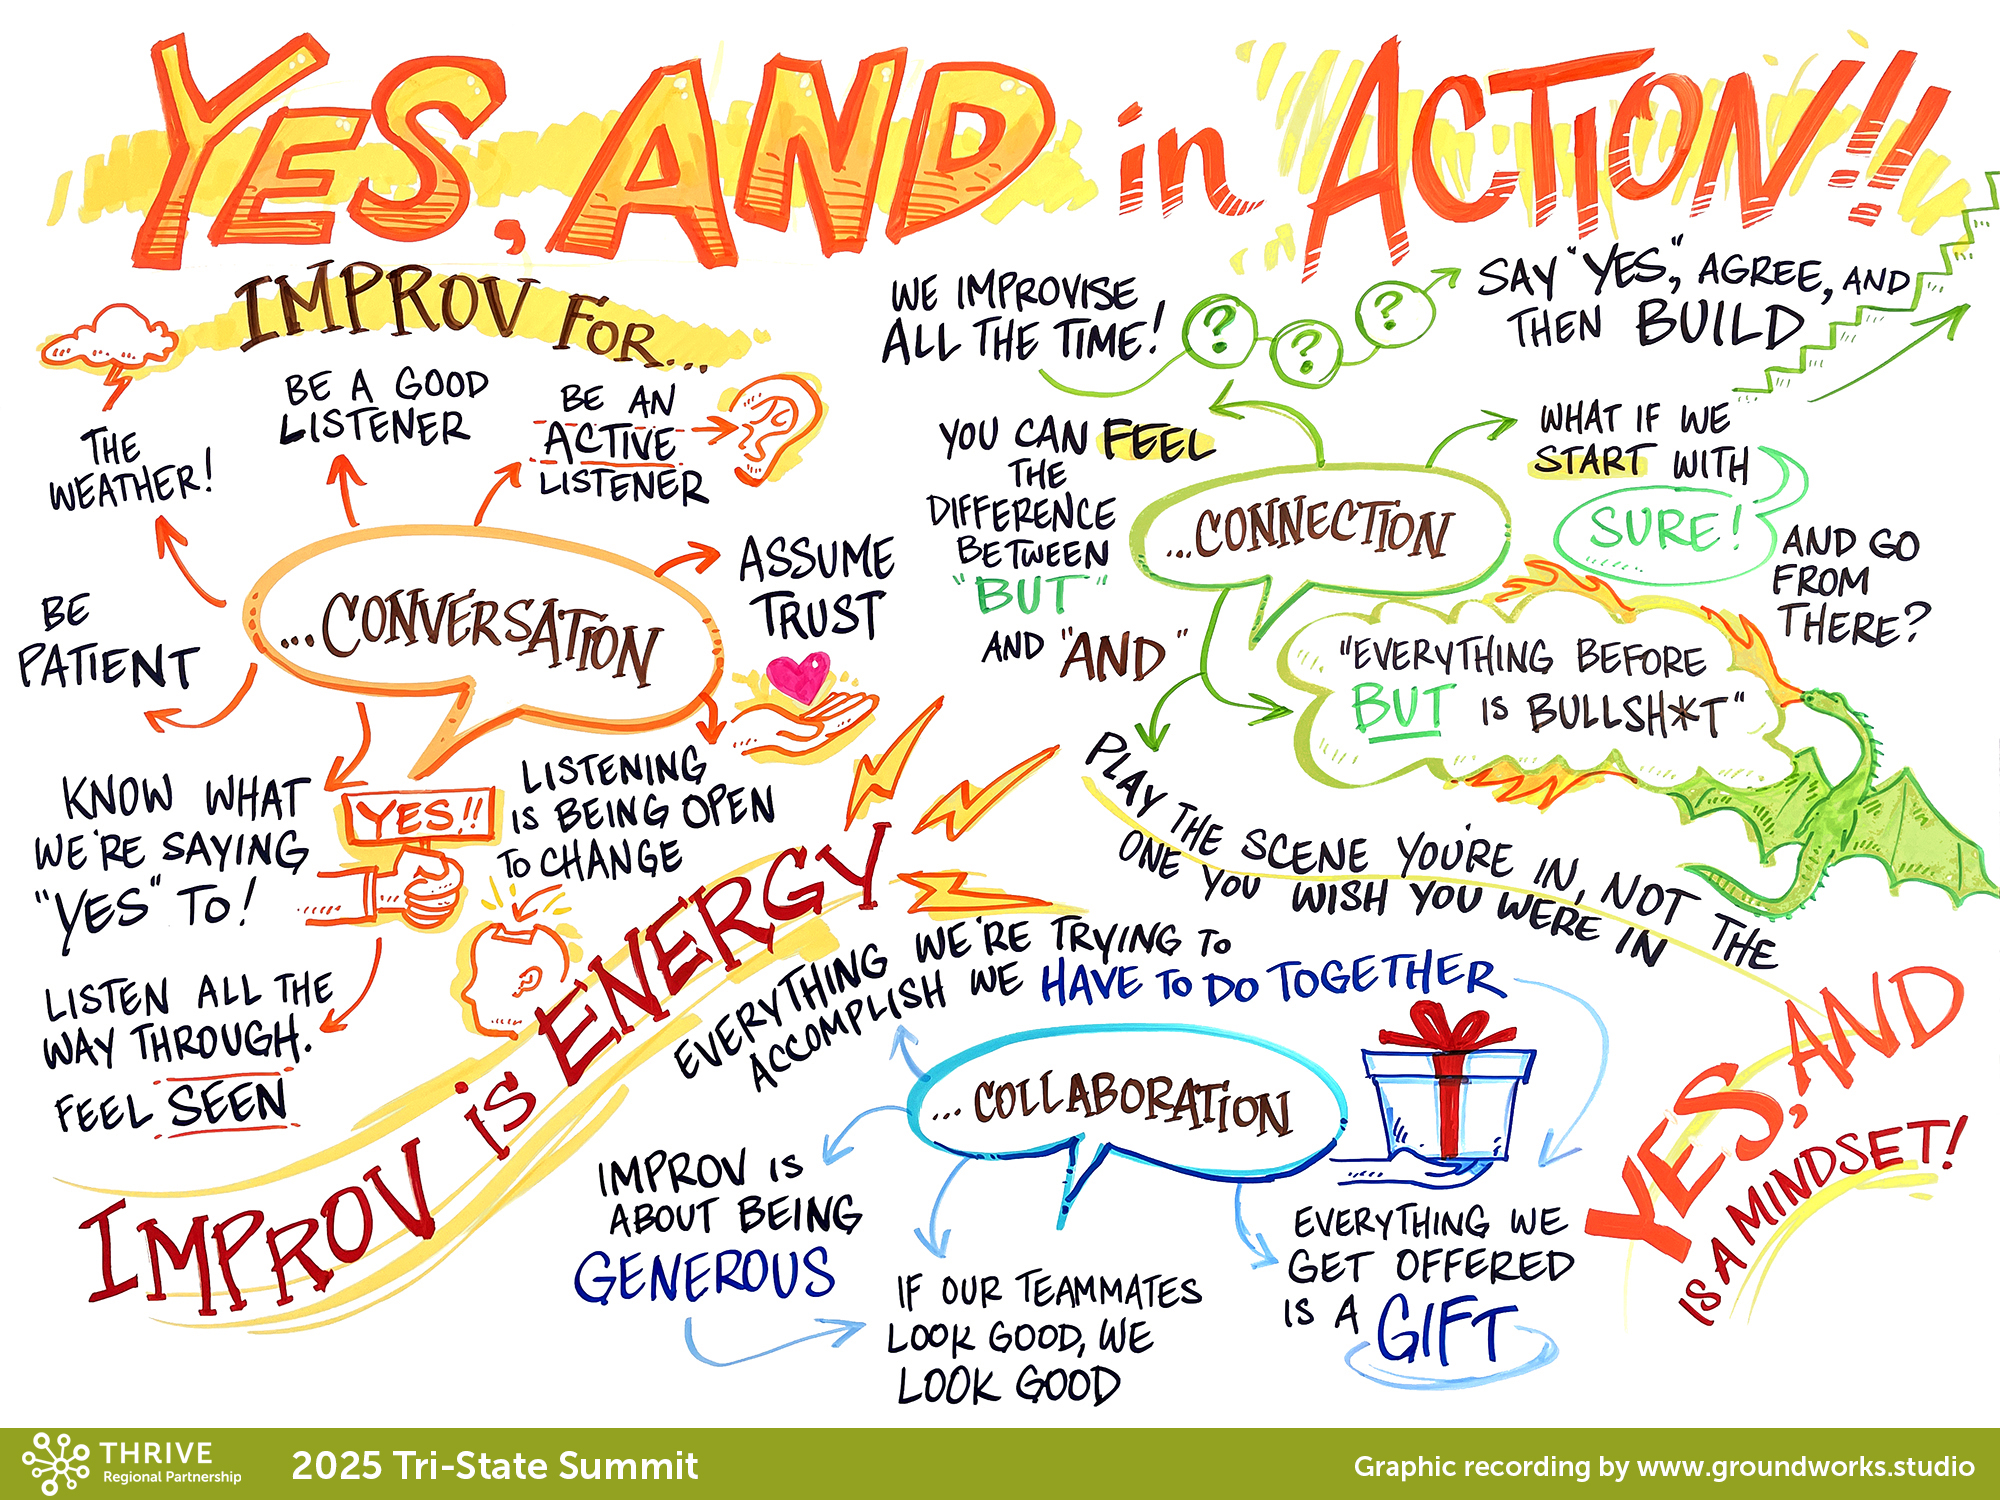 YES, AND in ACTION!!
IMPROV FOR...
THE
WEATHER!
BE A GOOD
LISTENER
BE AN
ACTIVE
LISTENER
...CONVERSATION
ASSUME
TRUST
BE
PATIENT
KNOW WHAT
WE'RE SAYING
"YES" TO!
YES!!
LISTENING
IS BEING OPEN
TO CHANGE
LISTEN ALL THE
WAY THROUGH.
FEEL SEEN
IMPROV is ENERGY
WE IMPROVISE
ALL THE TIME!
? ? ?
SAY "YES," AGREE, AND
THEN BUILD
YOU CAN FEEL
THE
DIFFERENCE
BETWEEN
"BUT"
AND "AND"
...CONNECTION
WHAT IF WE
START WITH
SURE!
AND GO
FROM
THERE?
"EVERYTHING BEFORE
BUT IS BULLSH*T"
PLAY THE SCENE YOU'RE IN, NOT THE
ONE YOU WISH YOU WERE IN
EVERYTHING WE'RE TRYING TO
ACCOMPLISH WE HAVE TO DO TOGETHER
...COLLABORATION
IMPROV IS
ABOUT BEING
GENEROUS
IF OUR TEAMMATES
LOOK GOOD, WE
LOOK GOOD
EVERYTHING WE
GET OFFERED
IS A GIFT
YES, AND
IS A MINDSET!
THRIVE
Regional Partnership
2025 Tri-State Summit
Graphic recording by www.groundworks.studio